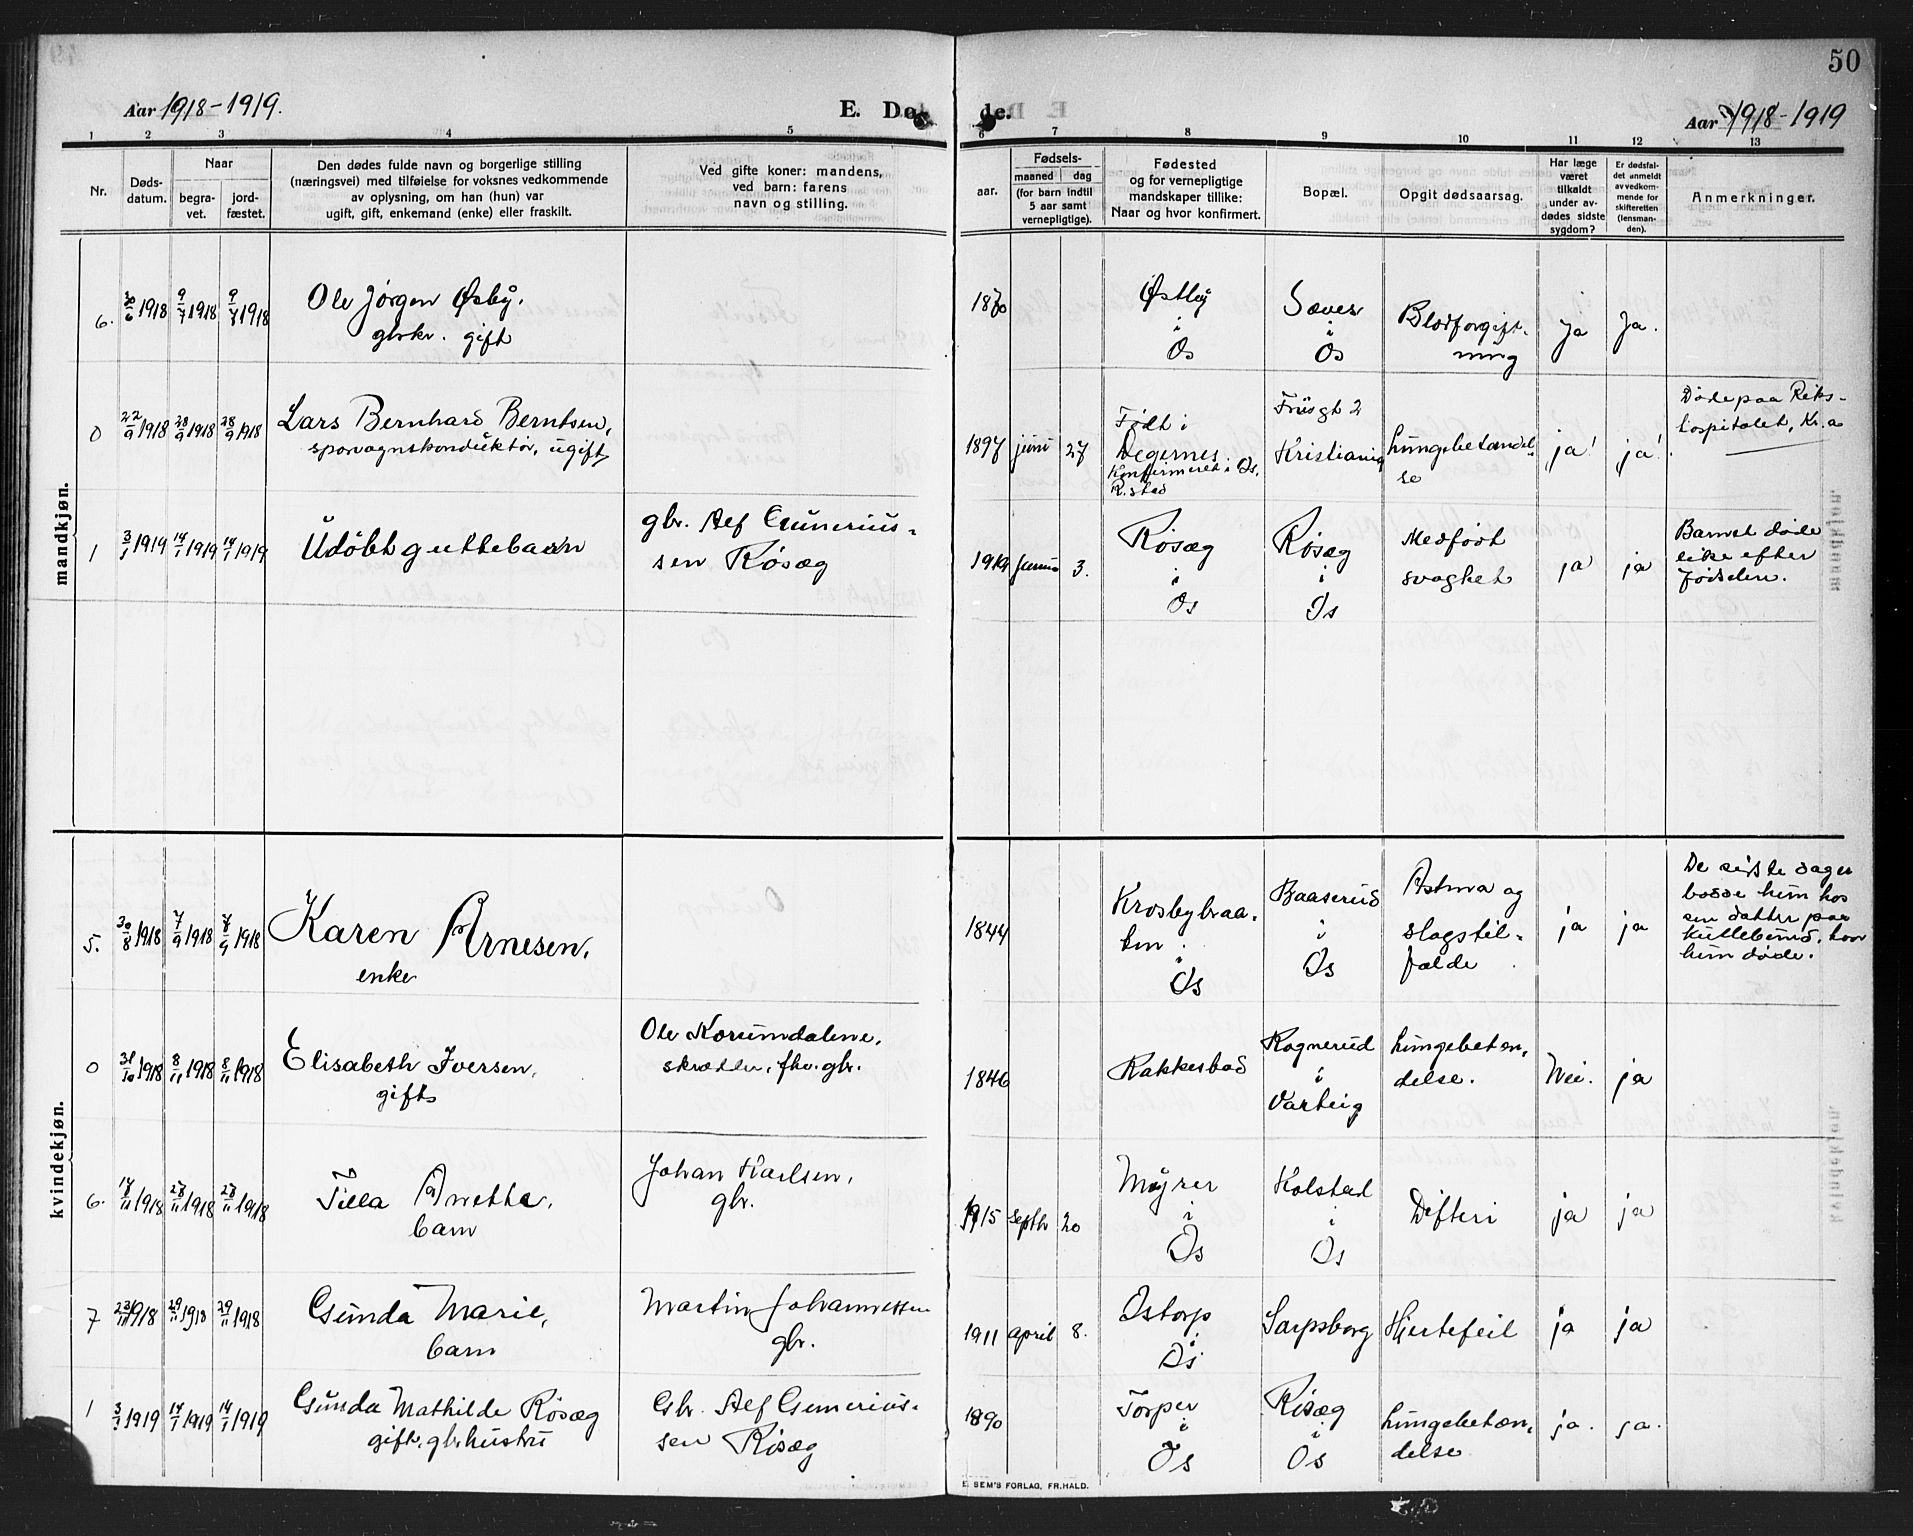 50
Aar 1918-1919.
E. Dø
de.
Aar 1918-1919
1 2 3 4 5 6 7 8 9 10 11 12 13
Nr.
Døds-
datum.
Naar
begra-
vet.
jord-
fæstet.
Den dødes fulde navn og borgerlige stilling
(næringsvei) med tilføielse for voksnes vedkommende
av oplysning, om han (hun) var
ugift, gift, enkemand (enke) eller fraskilt.
Ved gifte koner: mandens,
ved barn: farens
navn og stilling.
aar.
Fødsels-
maaned dag
(for barn indtil
5 aar samt
vernepligtige).
Fødested
og for vernepligtige
mandskaper tillike:
Naar og hvor konfirmert.
Bopæl.
Opgit dødsaarsag.
Har læge
været
tilkaldt
under av-
dødes sidste
sygdom?
Er dødsfal-
det anmeldt
av vedkom-
mende for
skifteretten
(lensman-
den).
Anmerkninger.
mandkjøn.
6. 30/6 1918 9/7 1918 9/7 1918
Ole Jørgen Østby.
gbrkr. gift
1870
Østby
i
Os
Sæves
i
Os
Blodforgift-
ning
ja
Ja.
0 22/9 1918 28/9 1918 28/9 1918
Lars Bernhard Berntsen,
sporvagnskonduktør, ugift
1897 juni 27
Født i
Degernes.
Konfirmeret i Os.
R.stad
2
Kristiania
lungebetændel-
se
ja!
ja!
Døde paa Riks-
hospitalet, Kr.a
1 3/1 1919 14/1 1919 14/1 1919
Udøbt guttebarn
gbr. Alf Gunerius-
sen Røsæg
1919 3.
Røsæg
i
Os
Røsæg
i
Os
Medfødt
svaghet
ja
ja
Barnet døde
like efter
fødselen.
kvindekjøn.
5. 30/8 1918 7/9 1918 7/9 1918
Karen Arnesen,
enke
1844
Krosbybraa-
ten
i
Os
Baaserud
i
Os
Astma og
slagstil-
fælde
ja
ja
De sidste dager
bodde hun hos
sen datter paa
Kullebund, hvor
hun døde.
0 31/10 1918 8/11 1918 8/11 1918
Elisabeth Iversen,
gift
Ole Korsundalene,
skrædder, fhv. gbr.
1846
Rakkestad
Rognerud
i
Varteig
lungebetæn-
delse.
Nei.
ja
6. 17/11 1918 28/11 1918 28/11 1918
Tilla Anette,
barn
Johan Karlsen,
gbr.
1915 septbr 20
Møyrer
i
Os
Kolstad
i
Os
Difteri
ja
ja
7 23/11 1918 29/11 1918 29/11 1918
Gunda Marie,
barn
Martin Johannessen
gbr.
1911 april 8.
Ostorp
i
Os
Sarpsborg
Hjertefeil
ja
ja
1 3/1 1919 14/1 1919 14/1 1919
Gunda Mathilde Røsæg
gift, gbr.hustru
Gbr. Alf Gunerius-
sen Røsæg
1890
Torper
i
Os
Røsæg
i
Os
lungebetæn-
delse
ja.
ja.
E. SEM'S FORLAG, FR.HALD.